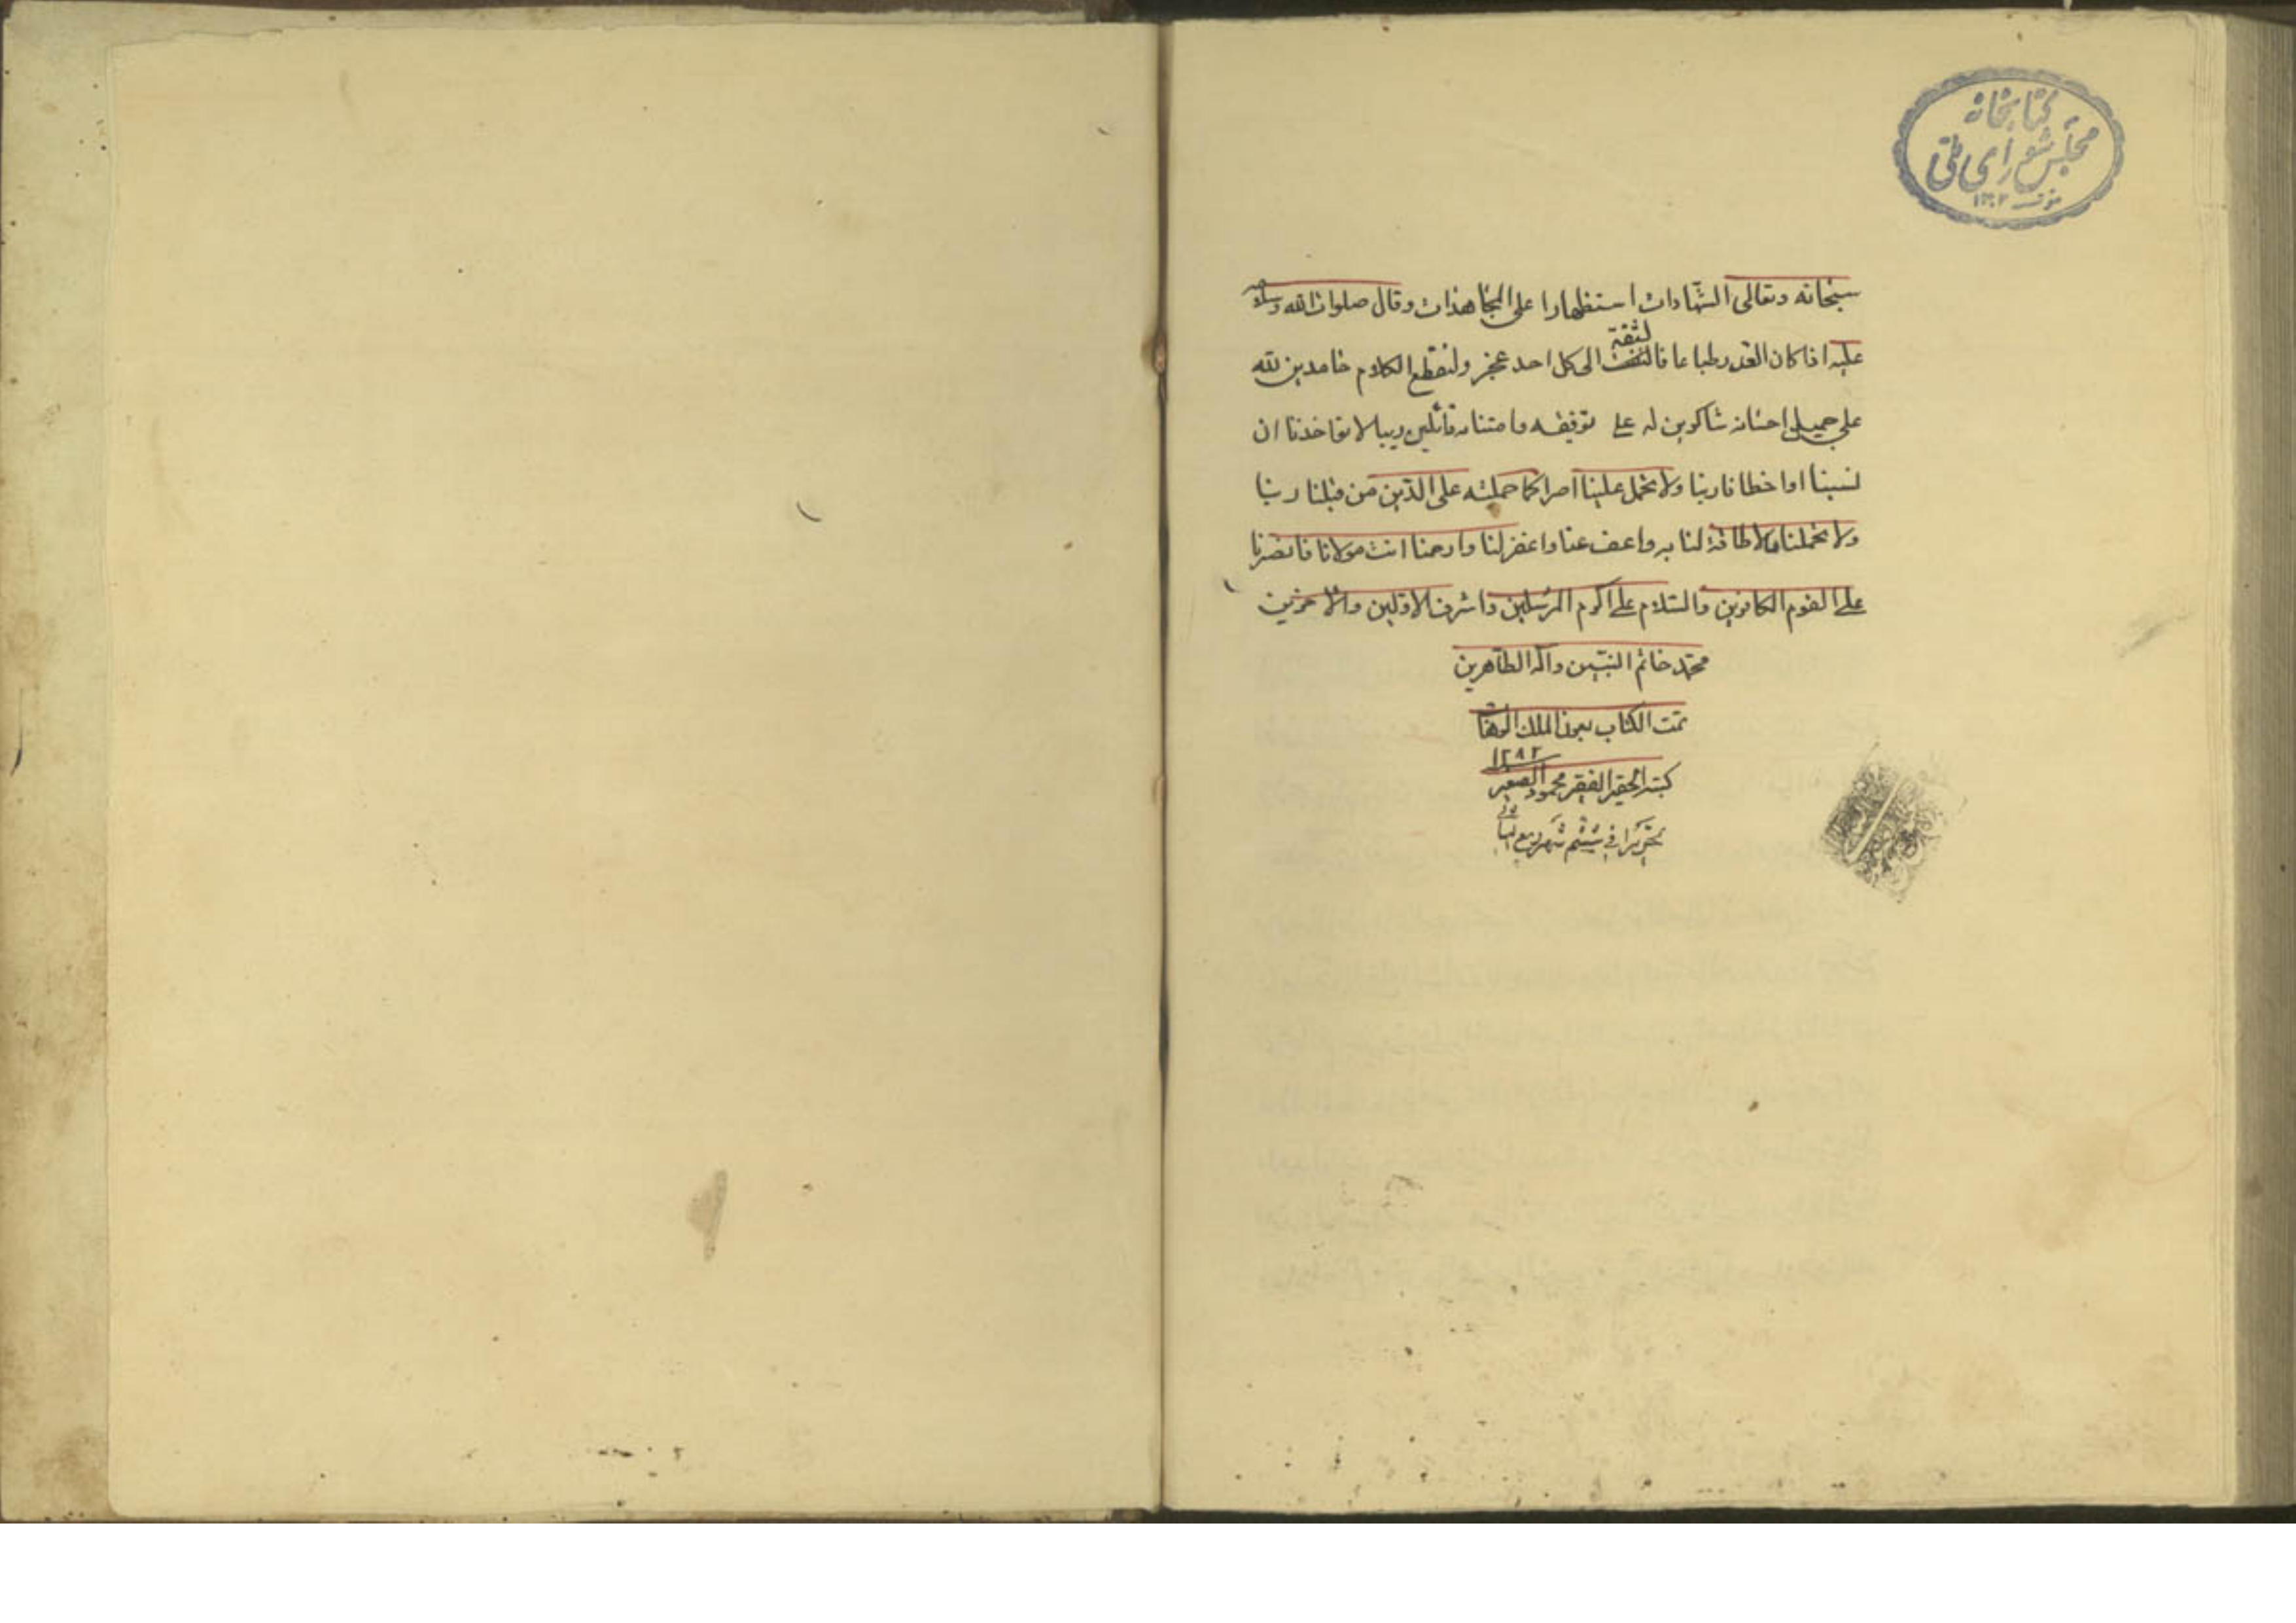 کتابخانه
مجلس شورای ملی
سبحانه وتعالی الشهادات استظهارا علی المجاهدات وقال صلوات الله وسلامه
علیه اذا کان الغدر طباعا فالثقة الی کل احد عجز ولنقطع الکلام حامدین لله
علی جمیل احسانه شاکرین له علی توفیقه وامتنانه قائلین ربنا لا تؤاخذنا ان
نسینا او اخطانا ربنا ولا تحمل علینا اصرا کما حملته علی الذین من قبلنا ربنا
ولا تحملنا مالا طاقة لنا به واعف عنا واغفر لنا وارحمنا انت مولانا فانصرنا
علی القوم الکافرین والسلام علی اکرم المرسلین واشرف الاولین والاخرین
محمد خاتم النبیین وآله الطاهرین
تمت الکتاب بعون الملک الوهاب
۱۲۸۲
کتبه الحقیر الفقیر محمود الصغیر
تحریرا فی ششم شهر ربیع الثانی